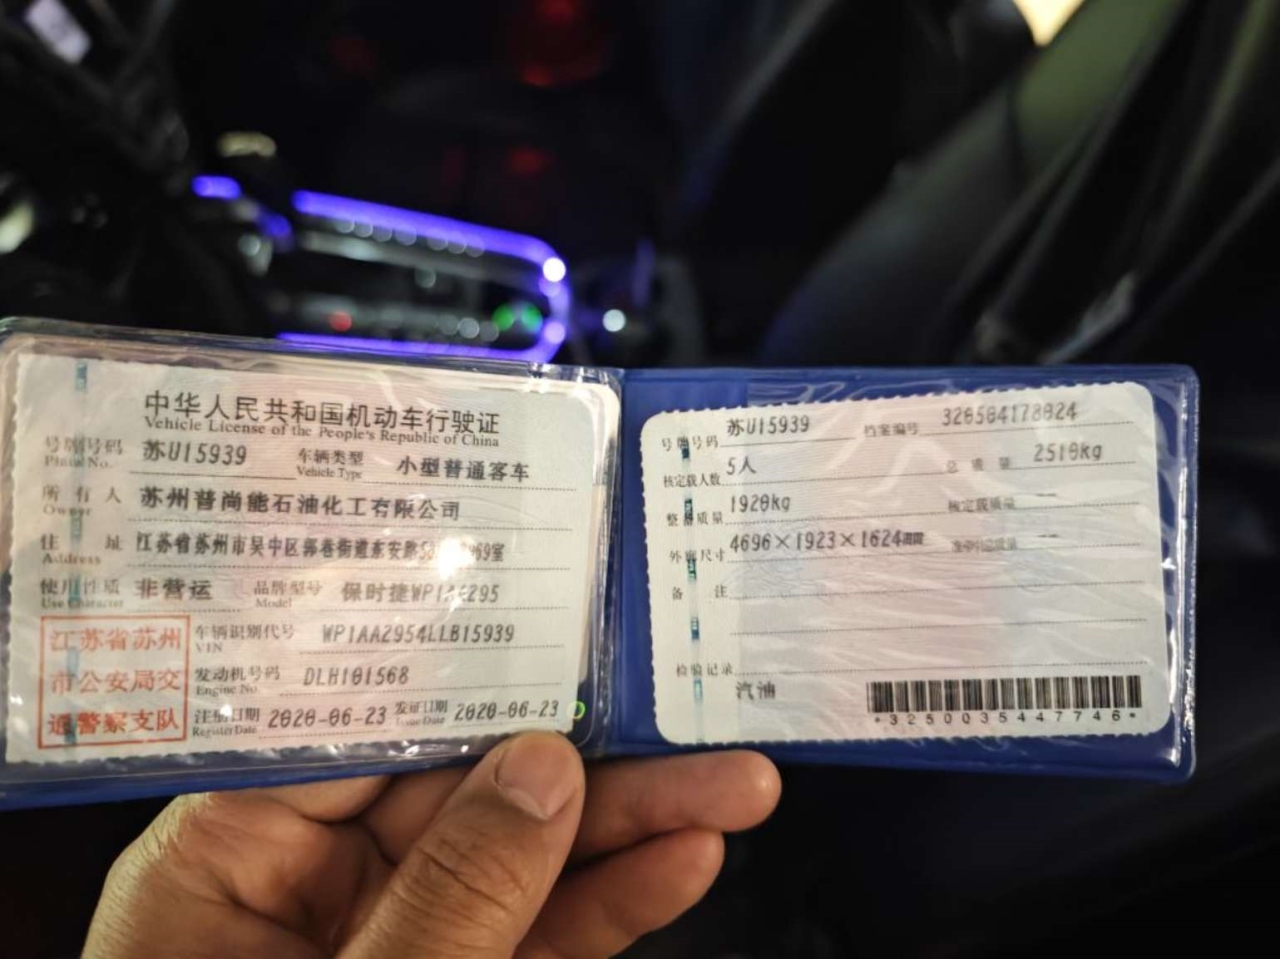 中华人民共和国机动车行驶证
Vehicle License of the People's Republic of China
号牌号码 苏U15939 车辆类型 小型普通客车
Plate No. Vehicle Type
所有人 苏州普尚能石油化工有限公司
Owner
住址 江苏省苏州市吴中区郭巷街道东安路
Address
使用性质 非营运 品牌型号 保时捷
Use Character Model
江苏省苏州
市公安局交
通警察支队
车辆识别代号 WP1AA2954LLB15939
VIN
发动机号码 DLH101568
Engine No.
注册日期 2020-06-23 发证日期 2020-06-23
Register Date Issue Date
号牌号码 苏U15939 档案编号 320504178024
核定载人数 5人 总质量 2510kg
整备质量 1920kg 核定载质量 --
外廓尺寸 4696×1923×1624 --
备注
检验记录
汽油
*3250035447746*